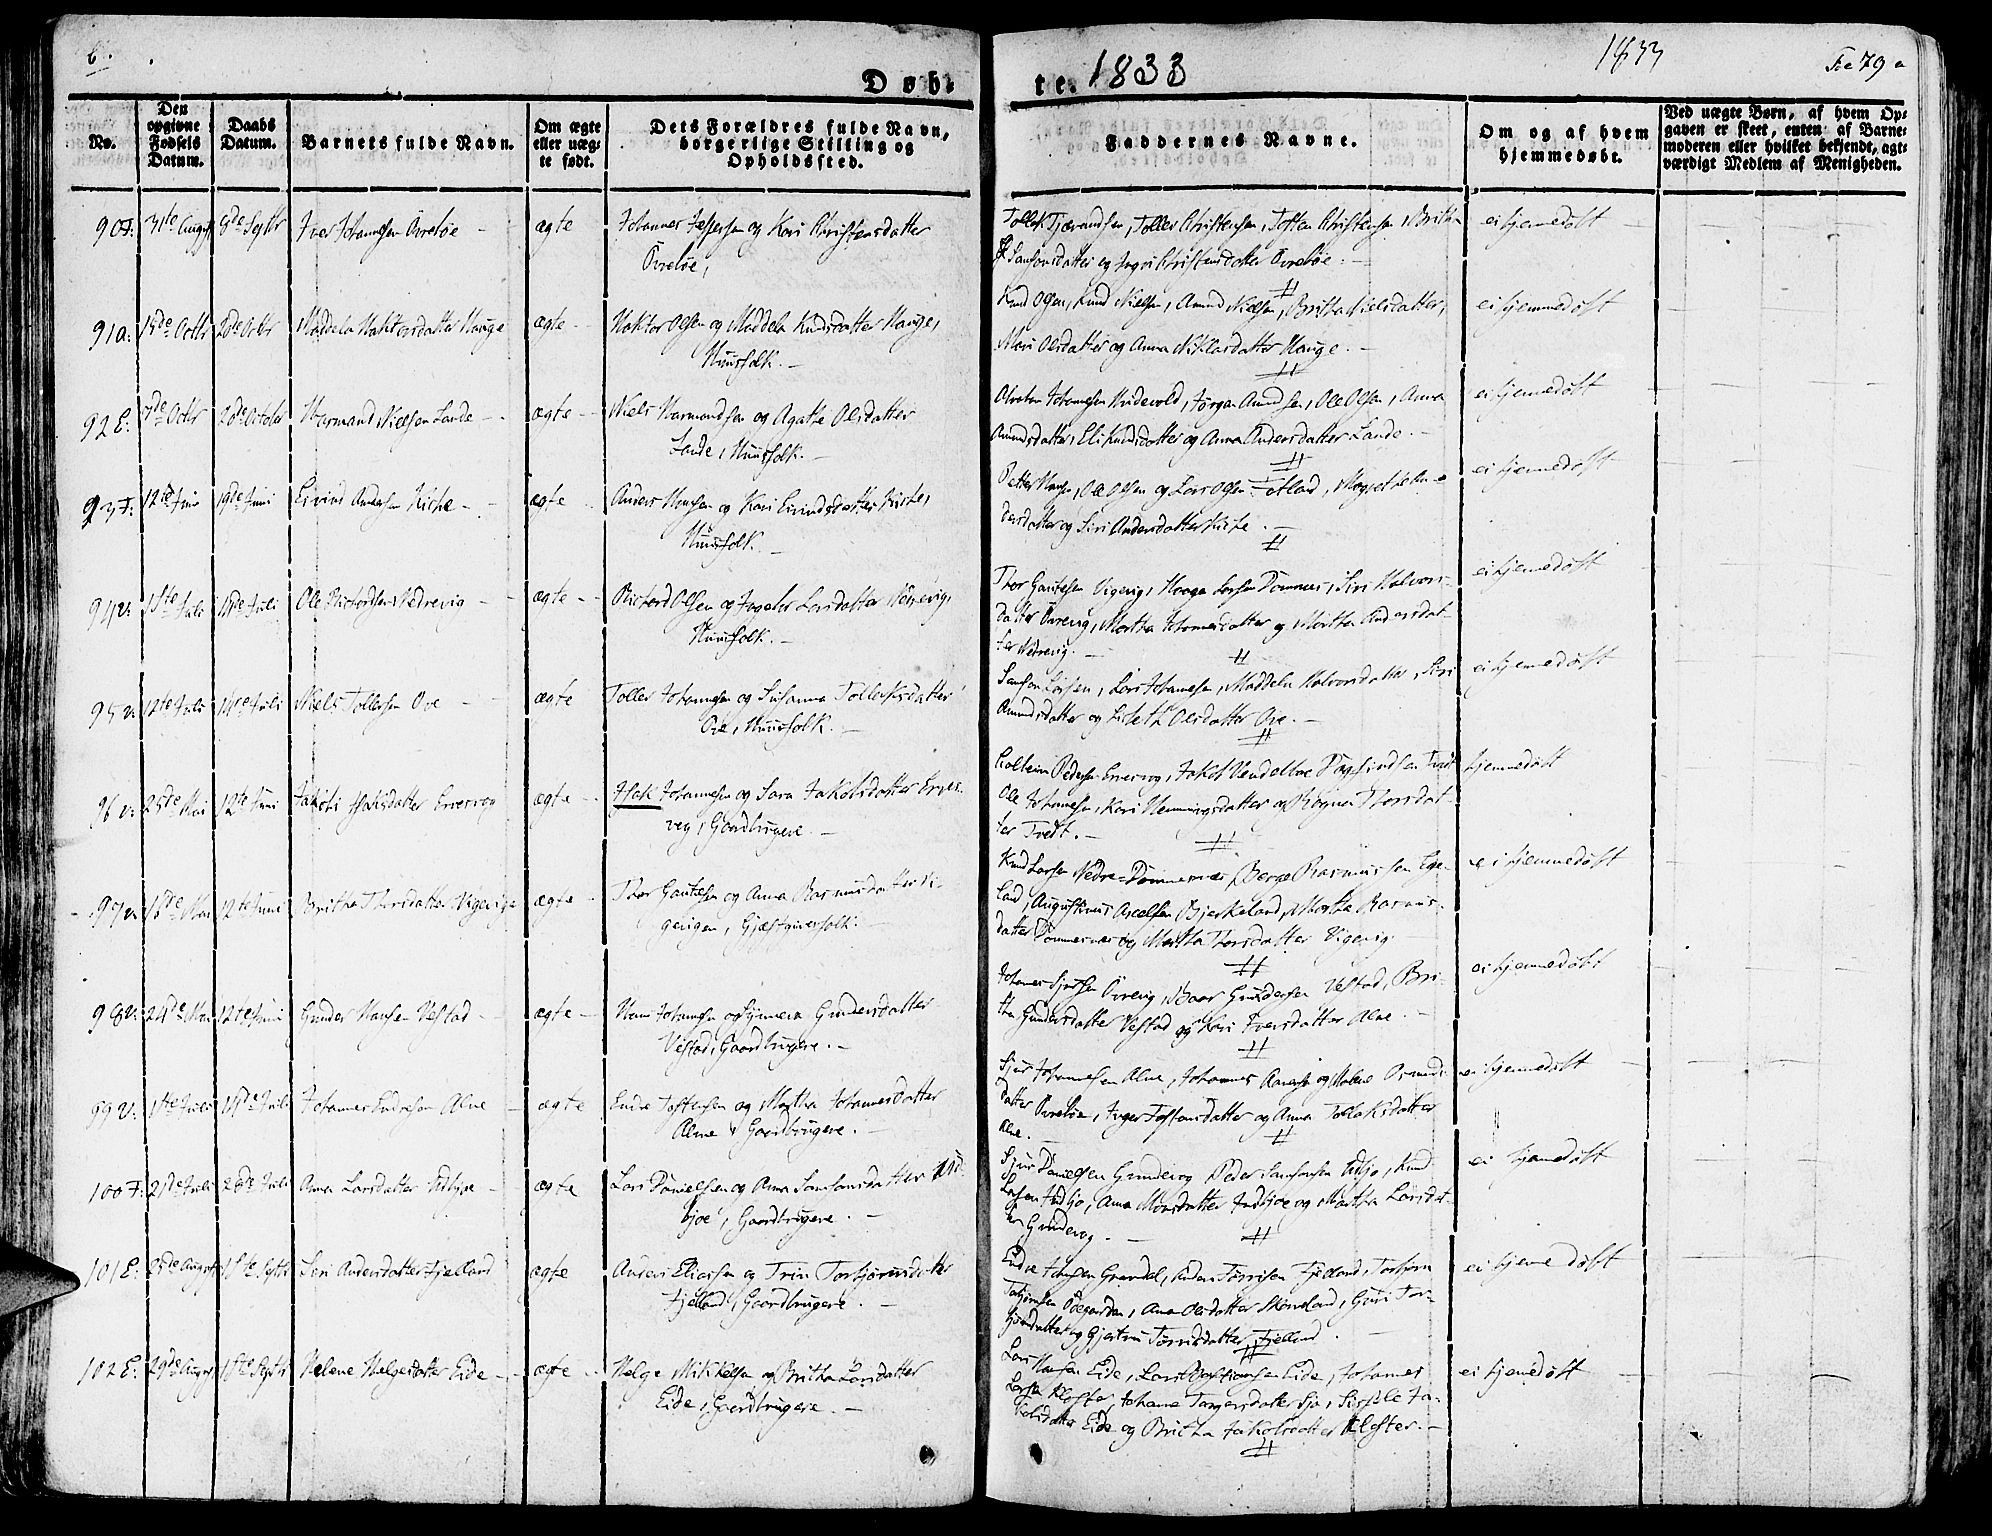 Døbte. 1833
1833
Fol 79 a
No.
Den opgivne Fødsels Datum.
Daabs Datum.
Barnets fulde Navn.
Om ægte eller uægte født.
Dets Forældres fulde Navn, borgerlige Stilling og Opholdssted.
Faddernes Navne.
Om og af hvem hjemmedøbt.
Ved uægte Børn, af hvem Opgaven er skeet, enten af Barnemoderen eller hvilket bekjendt, agtværdigt Medlem af Menigheden.
90 F. 31te August 8de Septbr Iver Johannesen Øvrebøe ægte Johannes Jespersen og Kari Christensdatter
Øvrebøe,
Tollef Tjerandsen, Tollef Christensen, Tosten Christensen, Britha
Samsonsdatter og Inger Christensdatter Øvrebøe.
ei hjemmedøbt
91 a. 15de Octbr 20de Octbr Maddela Haktorsdatter Hauge ægte Haktor Olsen og Maddela Knudsdatter Hauge,
Huusfolk.
Knud Olsen, Knud Nielsen, Amund Nielsen, Britha Nielsdatter,
Mari Olsdatter og Anna Niklasdatter Hauge.
ei hjemmedøbt
92 E. 7de Octbr 20de October Harmand Nielsen Lande ægte Niels Harmandsen og Agathe Olsdatter
Lande, Huusfolk.
Johannesen Hvidevold, Jørgen Amundsen, Ole Olsen, Anna
Amundsdatter, Eli Knudsdatter og Anna Andersdatter Lande.
ei hjemmedøbt
93 F. 12te Juni 19de Juni Eivind Andersen Kirke ægte Anders Hansen og Kari Eivindsdatter Kirke,
Huusfolk.
Petter Hansen, Ole Olsen og Lars Olsen Fetlad, Magrethe An-
dersdatter og Siri Andersdatter Kirke.
ei hjemmedøbt
94 V. 1ste Juli 14de Juli Ole Richardsen Nedrevig ægte Richard Olsen og Ingebor Larsdatter Nedrevig,
Huusfolk.
Thor Gautesen Vigevig, Haagen Larsen Pommernes, Siri Halvors-
datter Øvrevig, Martha Johannesdatter og Martha Andersdat-
ter Nedrevig.
ei hjemmedøbt
95 V. 12te Juli 14de Juli Niels Tollefsen Ove ægte Tollef Johannesen og Susanna Tollefsdatter
Ove, Huusfolk.
Samson Larsen, Lars Johannesen, Maddela Halvorsdatter, Siri
Amundsdatter og Lisbeth Olsdatter Ove.
ei hjemmedøbt
96 V. 25de Mai 12te Juni Jakobi Isaksdatter Ersvog ægte Isak Johannesen og Sara Jakobsdatter Ers-
vog, Gaardbrugere
Pedersen Ersvog, Jakob Vendelboe Dagfindsen Tvedt
Ole Johannesen, Kari Henningsdatter og Ragna Thorsdat-
ter Tvedt.
hjemmedøbt
97 V. 18de Mai 12te Juni Britha Thorsdatter Vigevig ægte Thor Gautesen og Anna Rasmusdatter Vi-
gevigen, Gjæstgiverfolk.
Knud Larsen Nedre-Pommernes, Børge Rasmussen Ege-
land, Augustinus Axelsen Bjerkeland, Martha Rasmus-
datter Pommernes og Martha Thorsdatter Vigevig.
ei hjemmedøbt
98 V. 24de Mai 12te Juni Gunder Hansen Vestad ægte Hans Johannesen og Synneva Gundersdatter
Vestad, Gaardbrugere.
Johannes Sjursen Øvrevig, Baar Gundersen Vestad, Bri-
tha Gundersdatter Vestad og Kari Iversdatter Alne.
ei hjemmedøbt
99 V. 1ste Juli 14de Juli Johannes Endresen Alne ægte Endre Tostensen og Martha Johannesdatter
Alne, Gaardbrugere.
Sjur Johannesen Alne, Johannes Aanensen og Malene Osmunds-
datter Øvrebøe, Inger Tostensdatter og Anna Tollaksdatter
Alne.
ei hjemmedøbt
100 F. 21de Juli 28de Juli Anna Larsdatter Indbjoe ægte Lars Danielsen og Anna Samsonsdatter Ind-
bjoe, Gaardbrugere.
Sjur Danielsen Grindevog, Peder Samsonsen Indbjo, Knud
Larsen Indbjo, Anna Monsdatter Indbjoe og Martha Larsdat-
ter Grindevog.
ei hjemmedøbt
101 E. 25de August 15de Septbr Siri Andersdatter Fjelland ægte Anders Eliassen og Trine Torbjørnsdatter
Fjelland, Gaardbrugere.
Endre Hansen Grandal, Anders Tørrisen Fjelland, Torbjørn
Torbjørnsen Ødegarden, Anna Olsdatter Skoneland, Guri Tor-
bjørnsdatter og Gjertru Tørrisdatter Fjelland.
ei hjemedøbt
102 E. 29de August 15de Septbr Helene Helgesdatter Eide ægte Helge Mikkelsen og Britha Larsdatter
Eide, Gaardbrugere.
Lars Hansen Eide, Lars Bastiansen Eide, Johannes
Larsen Kloster, Johanne Torgersdatter Sjo, Sissele Ja-
kobsdatter Eide og Britha Jakobsdatter Kloster.
ei hjemedøbt